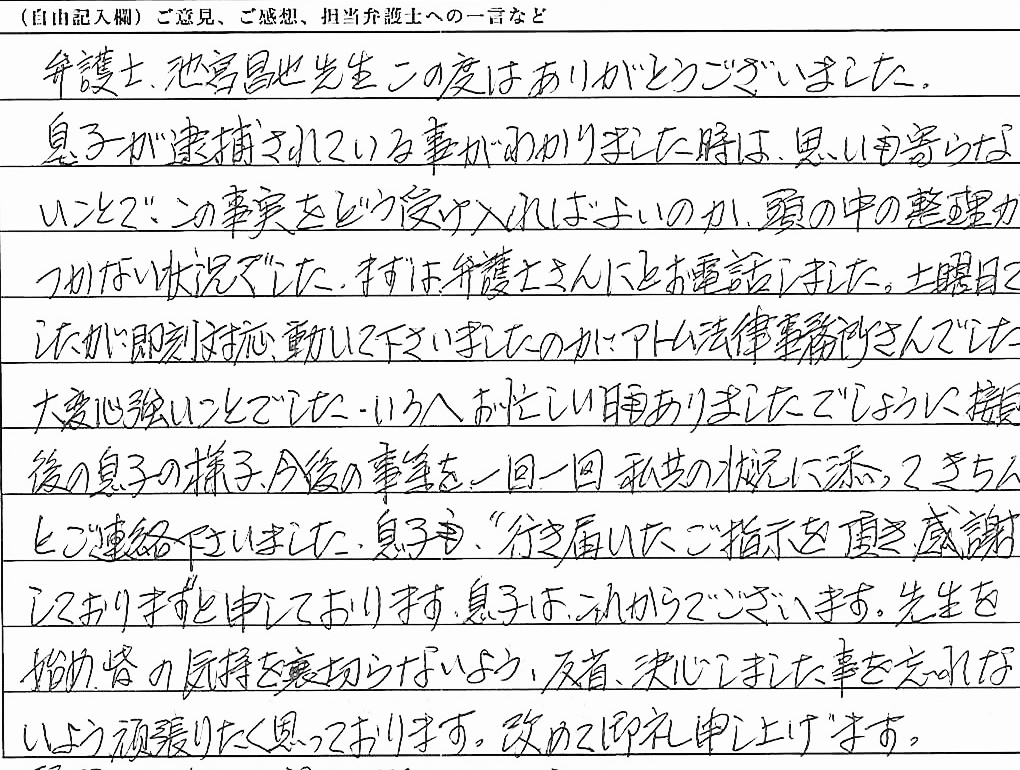 （自由記入欄）ご意見、ご感想、担当弁護士への一言など
弁護士、池宮昌也先生この度はありがとうございました。
息子が逮捕されている事がわかりました時は、思いも寄らな
いことで、この事実をどう受け入れればよいのか、頭の中の整理が
つかない状況でした、まずは、弁護士さんにとお電話しました。土曜日で
したが、即刻対応、動いて下さいましたのが、アトム法律事務所さんでした
大変心強いことでした、いろへお忙しい日もありましたでしょうに接見
後の息子の様子、今後の事等を、一回一回私共の状況に添ってきちん
とご連絡下さいました、息子も、“行き届いたご指示を頂き、感謝
しております”と申しております、息子は、これからでございます。先生を
始め、皆の気持を裏切らないよう、反省、決心しました事を忘れな
いよう頑張りたく思っております。改めて御礼申し上げます。